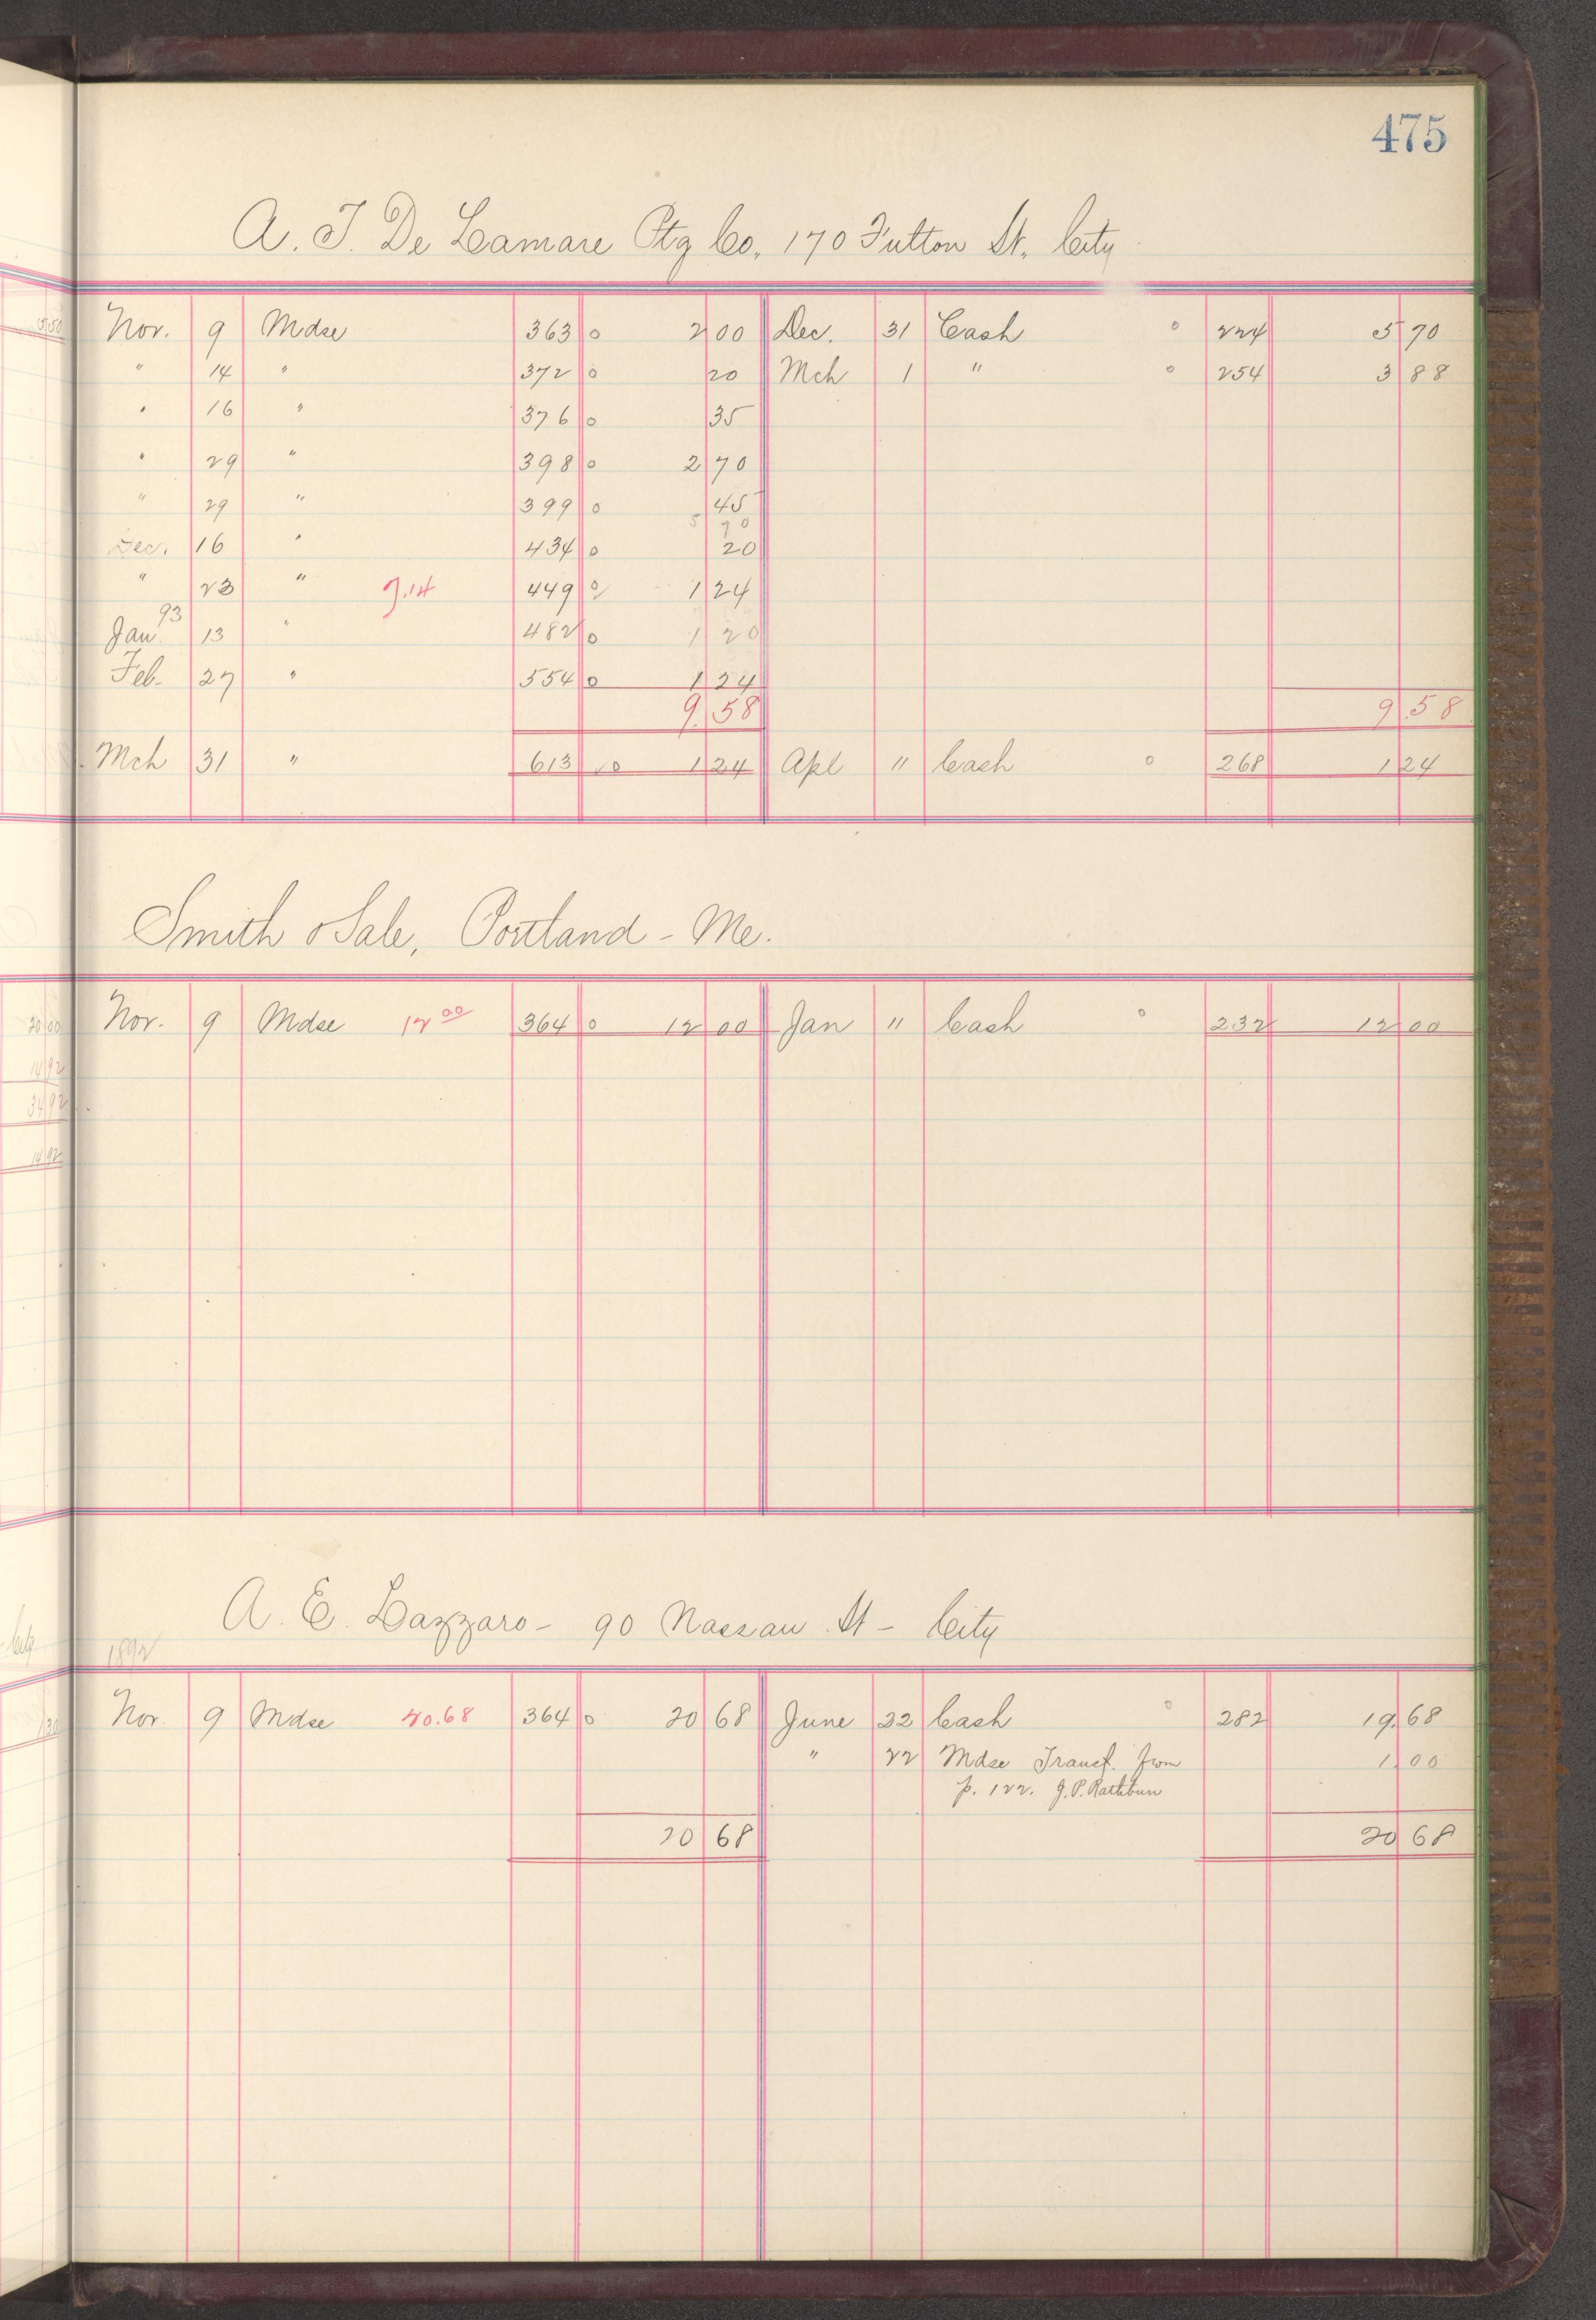 475
A. T. De Lamare Ptg Co. 170 Fulton St. City
Nov. 9 Mdse 363 0 2 00 Dec. 31 Cash 0 224 5 70
" 14 " 372 0 20 Mch 1 " 0 254 3 88
" 16 " 376 0 35
" 29 " 398 0 2 70
" 29 " 399 0 45
5 70
Dec. 16 " 434 0 20
" 23 " 7.14 449 0 1 24
Jan. 93 13 " 482 0 1 20
Feb. 27 " 554 0 1 24
9.58 9.58
Mch 31 " 613 10 1 24 Apl " Cash 0 268 1 24
Smith & Sale, Portland - Me.
Nov. 9 Mdse 12 00 364 0 12 00 Jan " Cash 0 232 12 00
A. E. Lazzaro - 90 Nassau St - City
1892
Nov. 9 Mdse 20.68 364 0 20 68 June 22 Cash 0 282 19.68
" 22 Mdse Transf. from 1 00
p. 122. J. P. Rathbun
20 68 20 68